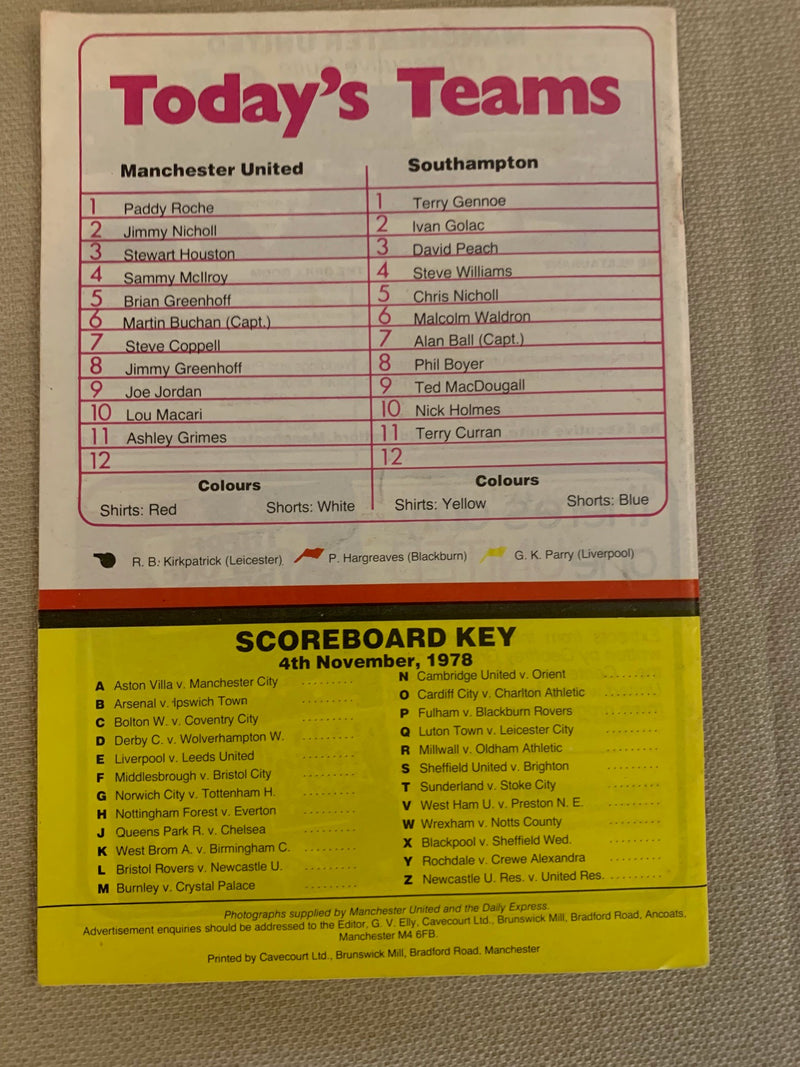 Today's Teams
Manchester United
1 Paddy Roche
2 Jimmy Nicholl
3 Stewart Houston
4 Sammy McIlroy
5 Brian Greenhoff
6 Martin Buchan (Capt.)
7 Steve Coppell
8 Jimmy Greenhoff
9 Joe Jordan
10 Lou Macari
11 Ashley Grimes
12
Colours
Shirts: Red Shorts: White
Southampton
1 Terry Gennoe
2 Ivan Golac
3 David Peach
4 Steve Williams
5 Chris Nicholl
6 Malcolm Waldron
7 Alan Ball (Capt.)
8 Phil Boyer
9 Ted MacDougall
10 Nick Holmes
11 Terry Curran
12
Colours
Shirts: Yellow Shorts: Blue
R. B. Kirkpatrick (Leicester) P. Hargreaves (Blackburn) G. K. Parry (Liverpool)
SCOREBOARD KEY
4th November, 1978
A Aston Villa v. Manchester City .........
B Arsenal v. Ipswich Town .........
C Bolton W. v. Coventry City .........
D Derby C. v. Wolverhampton W. .........
E Liverpool v. Leeds United .........
F Middlesbrough v. Bristol City .........
G Norwich City v. Tottenham H. .........
H Nottingham Forest v. Everton .........
J Queens Park R. v. Chelsea .........
K West Brom A. v. Birmingham C. .........
L Bristol Rovers v. Newcastle U. .........
M Burnley v. Crystal Palace .........
N Cambridge United v. Orient .........
O Cardiff City v. Charlton Athletic .........
P Fulham v. Blackburn Rovers .........
Q Luton Town v. Leicester City .........
R Millwall v. Oldham Athletic .........
S Sheffield United v. Brighton .........
T Sunderland v. Stoke City .........
V West Ham U. v. Preston N. E. .........
W Wrexham v. Notts County .........
X Blackpool v. Sheffield Wed. .........
Y Rochdale v. Crewe Alexandra .........
Z Newcastle U. Res. v. United Res. .........
Photographs supplied by Manchester United and the Daily Express.
Advertisement enquiries should be addressed to the Editor, G. V. Elly, Cavecourt Ltd., Brunswick Mill, Bradford Road, Ancoats,
Manchester M4 6FB.
Printed by Cavecourt Ltd., Brunswick Mill, Bradford Road, Manchester